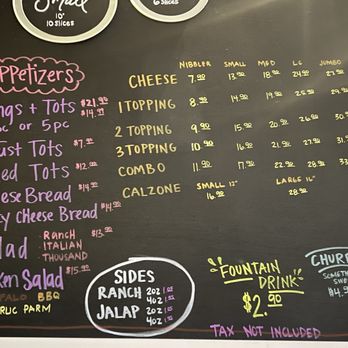 Small
10"
10 SLICES
6 SLICES
ppetizers
ngs + Tots $21.99
c or 5pc $14.99
ust Tots $7.99
ed Tots $12.99
eese Bread $14.99
y Cheese Bread $14.99
lad $13.99
RANCH
ITALIAN
THOUSAND
ken Salad $15.99
FALO BBQ
RUC PARM
NIBBLER SMALL MED LG JUMBO
CHEESE 7.90 13.90 18.90 24.90
1 TOPPING 8.90 14.90 19.90
2 TOPPING 9.90 15.90 20.90 26.90
3 TOPPING 10.90 16.90 21.90 27.90
COMBO 11.90 17.90 22.90 28.90
CALZONE SMALL 12" LARGE 16"
16.90 28.90
SIDES
RANCH 2OZ
4OZ
JALAP 2OZ
4OZ
FOUNTAIN
DRINK
$2.90
CHURR
SOMETH
SWE
$4.9
TAX NOT INCLUDED